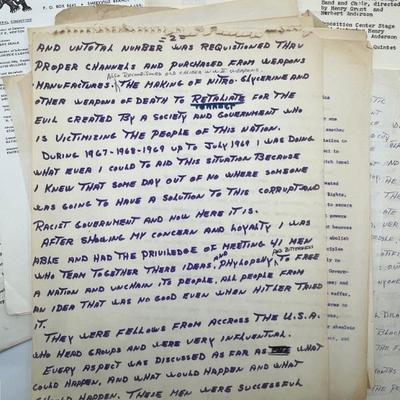 P. O. BOX 8641
-22-
AND UNTOTAL NUMBER WAS REQUISTIONED THRU
PROPER CHANNELS AND PURCHASED FROM WEAPONS
ALSO RECONDITIONED OLD CALIBER W.W. II WEAPONS.
MANUFACTURES. THE MAKING OF NITRO-GLYCERINE AND
OTHER WEAPONS OF DEATH TO RETALIATE FOR THE
EVIL CREATED BY A SOCIETY AND GOVERNMENT WHO
IS VICTIMIZING THE PEOPLE OF THIS NATION.
DURING 1967-1968-1969 UP TO JULY 1969 I WAS DOING
WHAT EVER I COULD TO AID THIS SITUATION BECAUSE
I KNEW THAT SOME DAY OUT OF NO WHERE SOMEONE
WAS GOING TO HAVE A SOLUTION TO THIS CORRUPT AND
RACIST GOVERNMENT AND NOW HERE IT IS.
AFTER SHOWING MY CONCERN AND LOYALTY I WAS
ABLE AND HAD THE PRIVILEDGE OF MEETING 41 MEN
WHO TEAM TOGETHER THERE IDEAS, AND PHYLOPOPHY AND BITTERNESS TO FREE
A NATION AND UNCHAIN ITS PEOPLE, ALL PEOPLE FROM
AN IDEA THAT WAS NO GOOD EVEN WHEN HITLER TRIED
IT.
THEY WERE FELLOWS FROM ACCROSS THE U.S.A.
WHO HEAD GROUPS AND WERE VERY INFLUENTIAL.
EVERY ASPECT WAS DISCUSSED AS FAR AS WHAT
COULD HAPPEN, AND WHAT WOULD HAPPEN AND WHAT
SHOULD HAPPEN. THESE MEN WERE SUCCESSFUL
Band and Choir, directed
by Henry Grant and
Herbert Anderson
Exposition Center Stage
Quintet